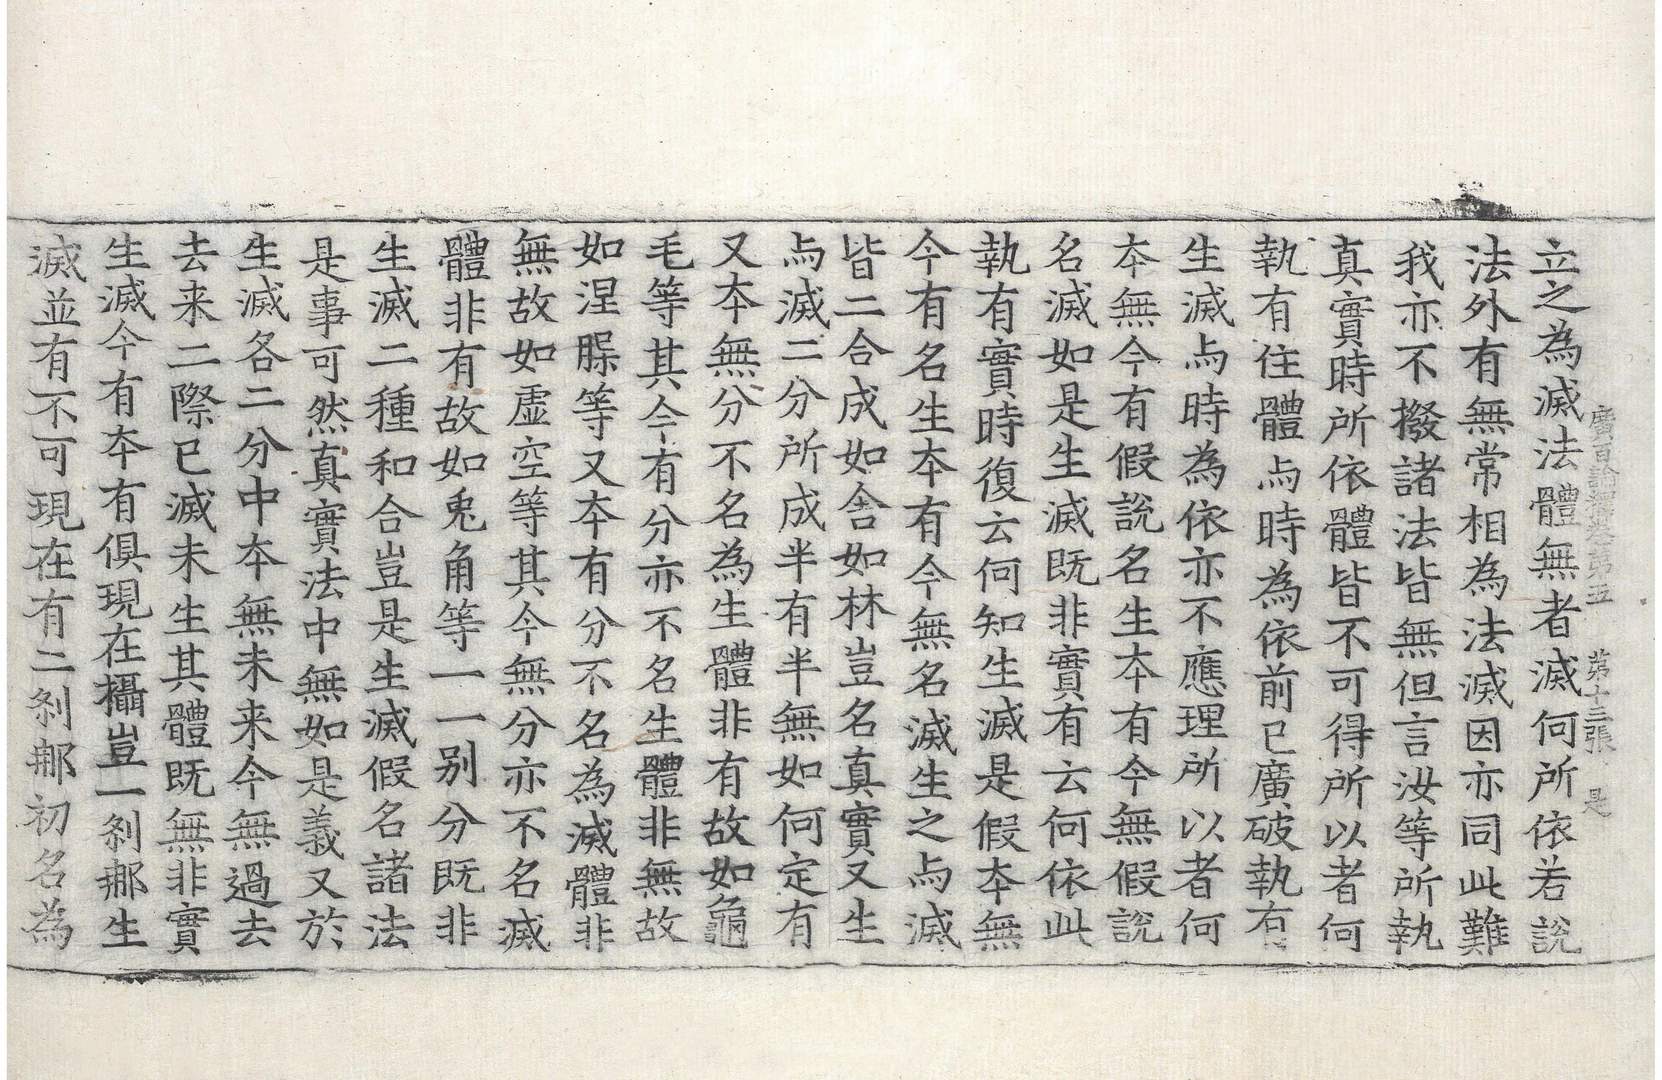 廣百論釋卷第五　第十三張　是
立之為滅法體無者滅何所依若說
法外有無常相為法滅因亦同此難
我亦不撥諸法皆無但言汝等所執
真實時所依體皆不可得所以者何
執有住體与時為依前已廣破執有
生滅与時為依亦不應理所以者何
本無今有假說名生本有今無假說
名滅如是生滅既非實有云何依此
執有實時復云何知生滅是假本無
今有名生本有今無名滅生之与滅
皆二合成如舍如林豈名真實又生
与滅二分所成半有半無如何定有
又本無分不名為生體非有故如龜
毛等其今有分亦不名生體非無故
如涅槃等又本有分不名為滅體非
無故如虛空等其今無分亦不名滅
體非有故如兎角等一一別分既非
生滅二種和合豈是生滅假名諸法
是事可然真實法中無如是義又於
生滅各二分中本無未来今無過去
去来二際已滅未生其體既無非實
生滅今有本有俱現在攝豈一剎那生
滅並有不可現在有二剎那初名為